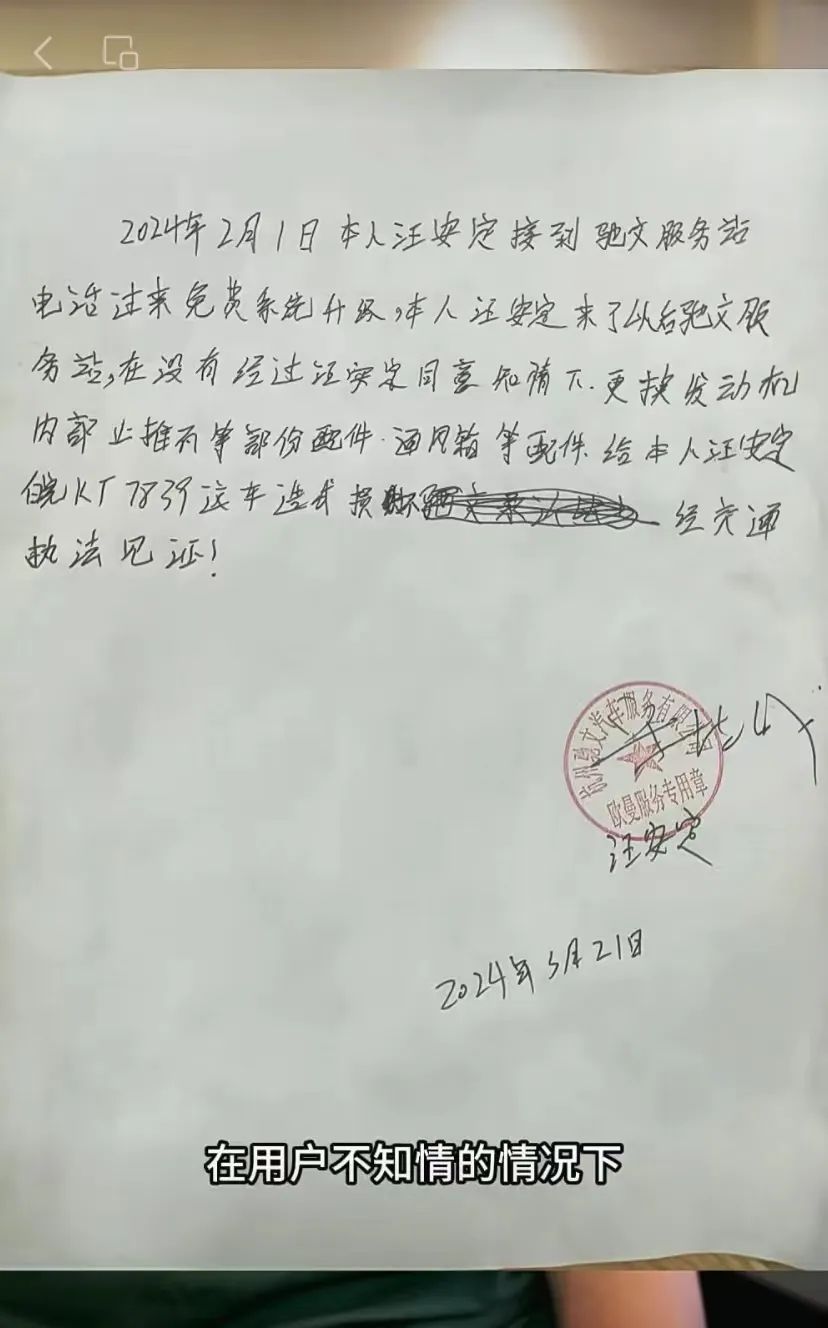 2024年2月1日本人汪安定接到驰文服务站
电话过来免费系统升级,本人汪安定来了以后驰文服
务站,在没有经过汪安定同意知情下.更换发动机
内部止推瓦等部份配件.通风箱等配件.给本人汪安定
皖KT7839汽车造成损 经交通
执法见证!
杭州驰文汽车服务有限公司
欧曼服务专用章
汪安定
2024年5月21日
在用户不知情的情况下